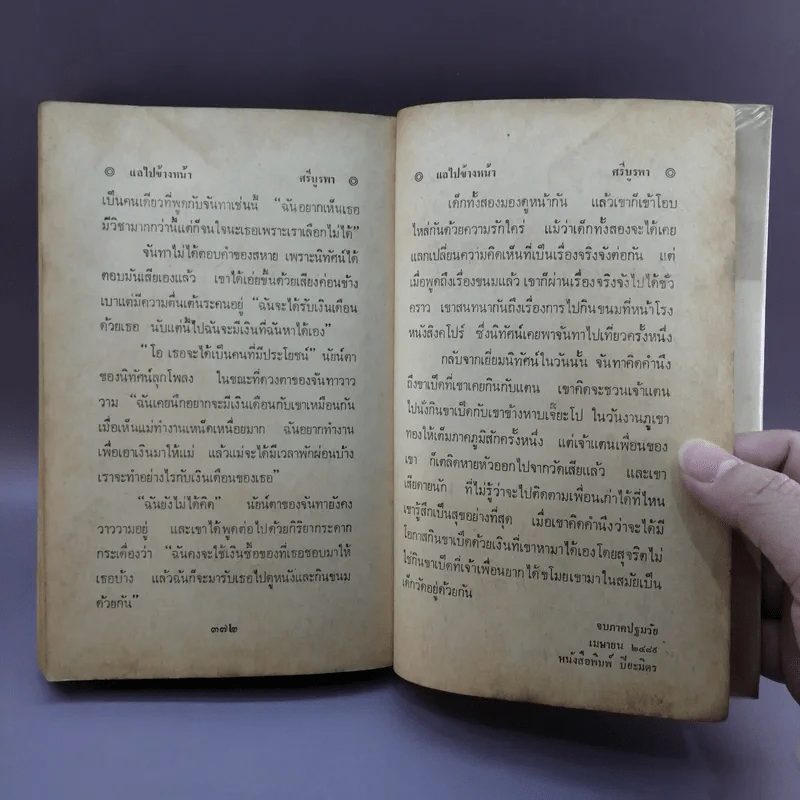 ◎ แลไปข้างหน้า ศรีบูรพา ◎
เป็นคนเดียวที่พูดกับจันทาเช่นนี้ “ฉันอยากเห็นเธอ
มีวิชามากกว่านี้แต่ก็จนใจนะเธอเพราะเราเลือกไม่ได้”
จันทาไม่ได้ตอบคำของสหาย เพราะนิทัศน์ได้
ตอบมันเสียเองแล้ว เขาได้เอ่ยขึ้นด้วยเสียงค่อนข้าง
เบาแต่มีความตื่นเต้นระคนอยู่ “ฉันจะได้รับเงินเดือน
ด้วยเธอ นับแต่นี้ไปฉันจะมีเงินที่ฉันหาได้เอง”
“โอ เธอจะได้เป็นคนที่มีประโยชน์” นัยน์ตา
ของนิทัศน์ลุกโพลง ในขณะที่ดวงตาของจันทาวาว
วาม “ฉันเคยนึกอยากจะมีเงินเดือนกับเขาเหมือนกัน
เมื่อเห็นแม่ทำงานเหน็ดเหนื่อยมาก ฉันอยากทำงาน
เพื่อเอาเงินมาให้แม่ แล้วแม่จะได้มีเวลาพักผ่อนบ้าง
เราจะทำอย่างไรกับเงินเดือนของเธอ”
“ฉันยังไม่ได้คิด” นัยน์ตาของจันทายังคง
วาววามอยู่ และเขาได้พูดต่อไปด้วยกิริยากระดาก
กระเดื่องว่า “ฉันคงจะใช้เงินซื้อของที่เธอชอบมาให้
เธอบ้าง แล้วฉันก็จะมารับเธอไปดูหนังและกินขนม
ด้วยกัน”
๓๗๒
◎ แลไปข้างหน้า ศรีบูรพา ◎
เด็กทั้งสองมองดูหน้ากัน แล้วเขาก็เข้าโอบ
ไหล่กันด้วยความรักใคร่ แม้ว่าเด็กทั้งสองจะได้เคย
แลกเปลี่ยนความคิดเห็นที่เป็นเรื่องจริงจังต่อกัน แต่
เมื่อพูดถึงเรื่องขนมแล้ว เขาก็ผ่านเรื่องจริงจังไปได้ชั่ว
คราว เขาสนทนากันถึงเรื่องการไปกินขนมที่หน้าโรง
หนังสิงคโปร์ ซึ่งนิทัศน์เคยพาจันทาไปเที่ยวครั้งหนึ่ง
กลับจากเยี่ยมนิทัศน์ในวันนั้น จันทาคิดคำนึง
ถึงขาเป็ดที่เขาเคยกินกับแตน เขาคิดจะชวนเจ้าแตน
ไปนั่งกินขาเป็ดกับเขาข้างหาบเจ๊ยะโป ในวันงานภูเขา
ทองให้เต็มภาคภูมิสักครั้งหนึ่ง แต่เจ้าแตนเพื่อนของ
เขา ก็เตลิดหายหัวออกไปจากวัดเสียแล้ว และเขา
เสียดายนัก ที่ไม่รู้ว่าจะไปติดตามเพื่อนเก่าได้ที่ไหน
เขารู้สึกเป็นสุขอย่างที่สุด เมื่อเขาคิดคำนึงว่าจะได้มี
โอกาสกินขาเป็ดด้วยเงินที่เขาหามาได้เองโดยสุจริตไม่
ใช่กินขาเป็ดที่เจ้าเพื่อนยากได้ขโมยเขามาในสมัยเป็น
เด็กวัดอยู่ด้วยกัน
จบภาคปฐมวัย
เมษายน ๒๔๙๘
หนังสือพิมพ์ ปิยะมิตร